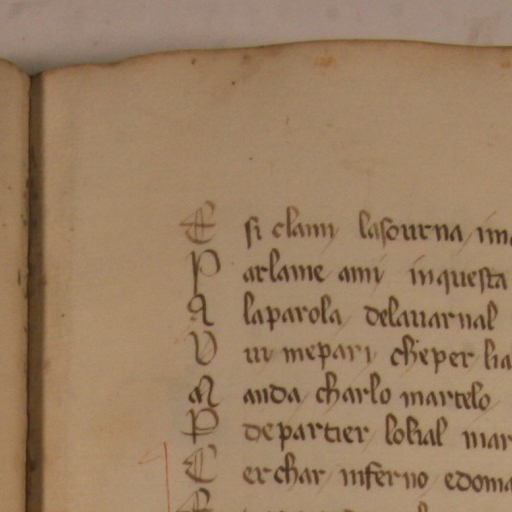 E si clamj lasourna
P arlame amj inquesta
A laparola delauarnal
V ui mepari che per
M anda charlo martelo
P departier lolial mar
C er char inferno edoma